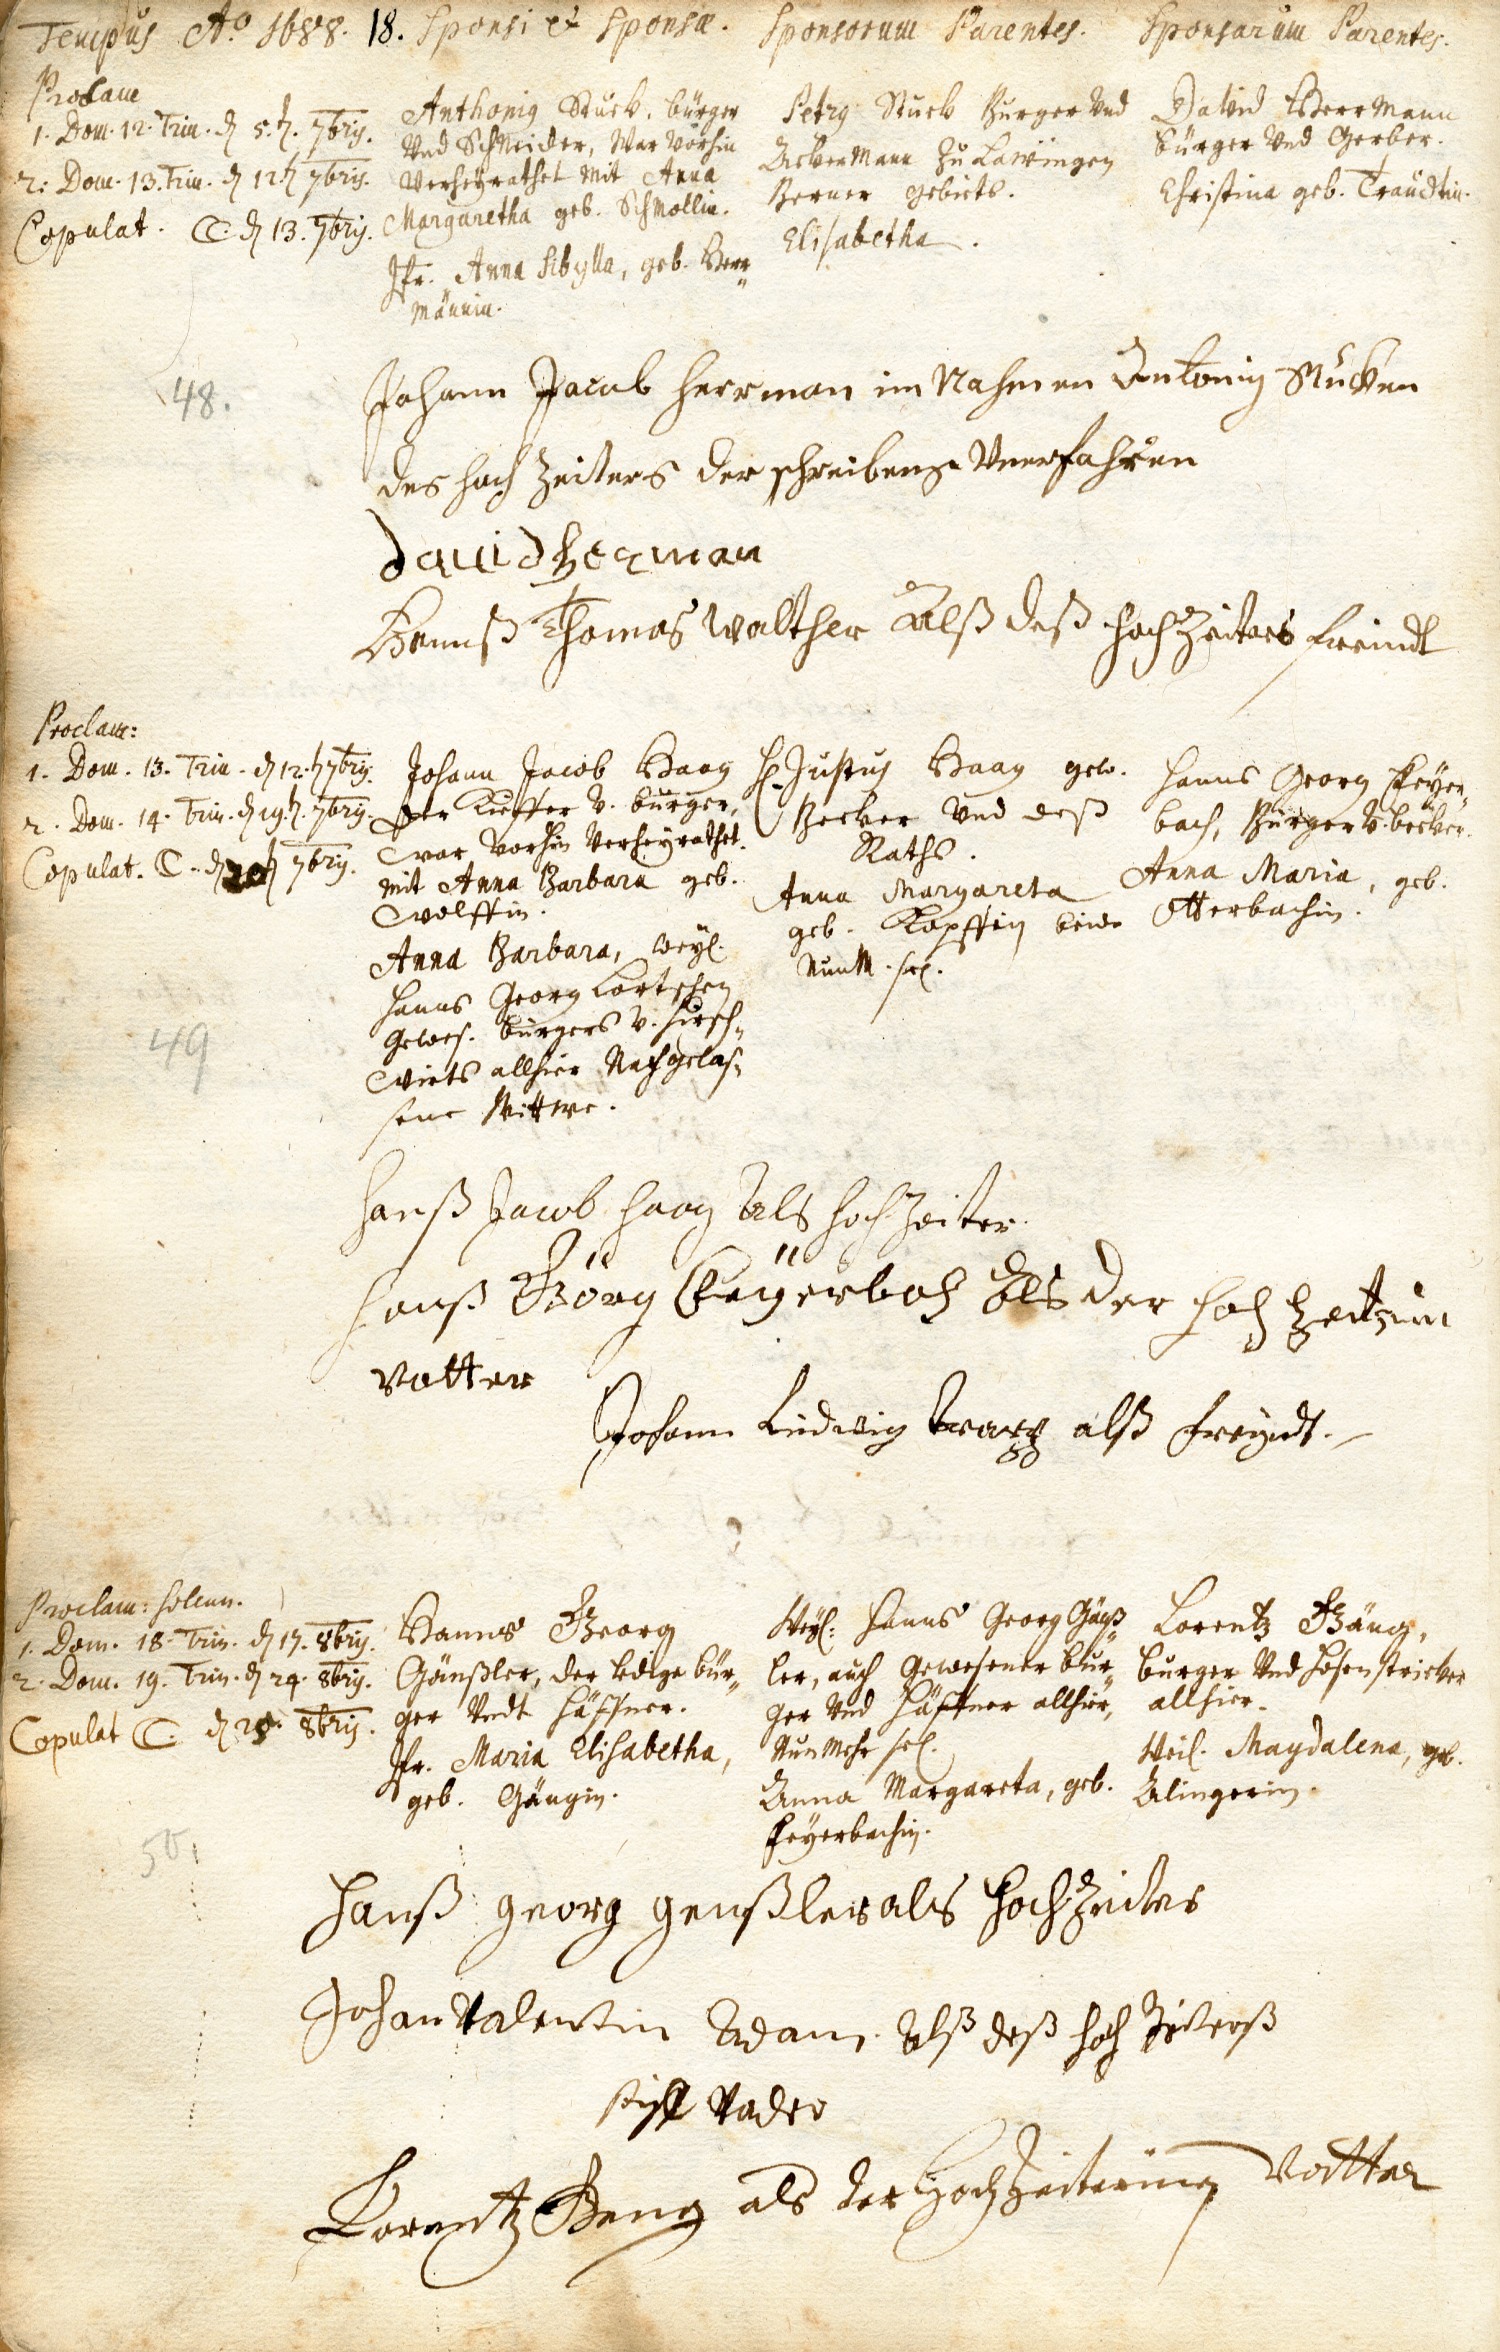 Tempus Aº 1688. 18. Sponsi et Sponsæ. Sponsorum Parentes. Sponsarum Parentes.
Proclam
1. Dom. 12. Trin. d. 5. 7bris.
2. Dom. 13. Trin. d. 12. 7bris.
Copulat. d. 13. 7bris.
Anthonius Stuck, bürger
Und Schneider, War vorhin
Verheyrathet mit Anna
Margaretha geb. Schmollin.
Jfr. Anna Sibylla, geb. Herr-
männin.
Petrus Stuck Burger Und
AckerMann zu
Berner gebiets.
Elisabetha.
David Herrmann
bürger Und Gerber.
Christina geb. Traudtin.
48.
Johann Jacob Herrman im Nahmen Antonius Stucken
des hochzeiters der schreibens Unerfahren
david herman
Hannß Thomas Walther Alß deß hochzeiters freindt
Proclam:
1. Dom. 13. Trin. d. 12. 7bris.
2. Dom. 14. Trin. d. 19. 7bris.
Copulat. d. 20 7bris.
Johann Jacob Haag
der Kieffer v. burger,
war vorhin Verheyrathet
mit Anna Barbara geb.
Wolffin.
Anna Barbara, weyl.
Hanns Georg Lortschen
gewes. burgers v. hirsch-
wirts allhier Nachgelas-
sene Wittwe.
H. Justus Haag gew.
Becker Und deß
Raths.
Anna Margareta
geb. Kopffin beide
NunM. sel.
Hanns Georg Feyer-
bach, Bürger v. becker.
Anna Maria, geb.
Otterbachin.
49
Hanß Jacob Haag Als hochzeiter
Hanß Görg Feyerbach Als der hochzeiterin
Vatter
Johann Ludwig alß freundt.
Proclam: solenn.
1. Dom. 18. Trin. d. 17. 8bris.
2. Dom. 19. Trin. d. 24. 8bris.
Copulat d. 25. 8bris.
Hanns Georg
Gänßler, der ledige bür-
ger Undt häffner.
Jfr. Maria Elisabetha,
geb. Gängin.
Weyl. Hanns Georg Gänß-
ler, auch Gewesener bur-
ger Und Häffner allhier,
NunMehr sel.
Anna Margareta, geb.
Feyerbachin.
Lorentz Gäng,
burger Und hosenstricker
allhier.
Weil. Magdalena, geb.
Alingerin.
50
Hanß georg genßler als Hochzeiter
Johan Valentin Adam Alß deß hochzeiterß
stiff Vader
Lorentz Geng als der Hochzeiterin Vatter